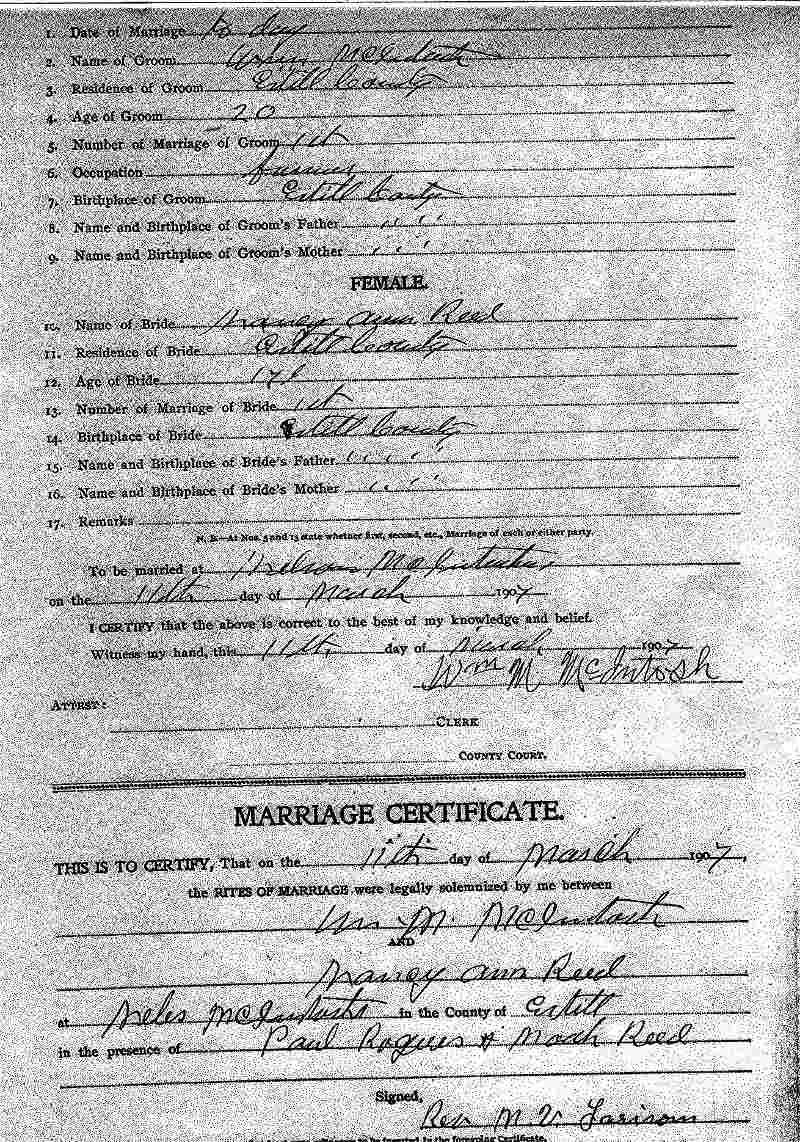 1. Date of Marriage to day
2. Name of Groom Wm McIntosh
3. Residence of Groom Estill County
4. Age of Groom 20
5. Number of Marriage of Groom 1st
6. Occupation farmer
7. Birthplace of Groom Estill County
8. Name and Birthplace of Groom's Father " " "
9. Name and Birthplace of Groom's Mother " " "
FEMALE.
10. Name of Bride Nancy Ann Reed
11. Residence of Bride Estill County
12. Age of Bride
13. Number of Marriage of Bride 1st
14. Birthplace of Bride Estill County
15. Name and Birthplace of Bride's Father " " " "
16. Name and Birthplace of Bride's Mother " " "
17. Remarks
N. B.—At Nos. 5 and 13 state whether first, second, etc., Marriage of each or either party.
To be married at McIntosh
on the 11th day of March 1907
I CERTIFY that the above is correct to the best of my knowledge and belief.
Witness my hand, this 11th day of March 1907
Wm M McIntosh
ATTEST:
CLERK
COUNTY COURT.
MARRIAGE CERTIFICATE.
THIS IS TO CERTIFY, That on the 11th day of March 1907,
the RITES OF MARRIAGE were legally solemnized by me between
Wm M. McIntosh
AND
Nancy Ann Reed
at McIntosh in the County of Estill
in the presence of Paul Rogers & Noah Reed
Signed,
Rev M. V.
the foregoing Certificate.